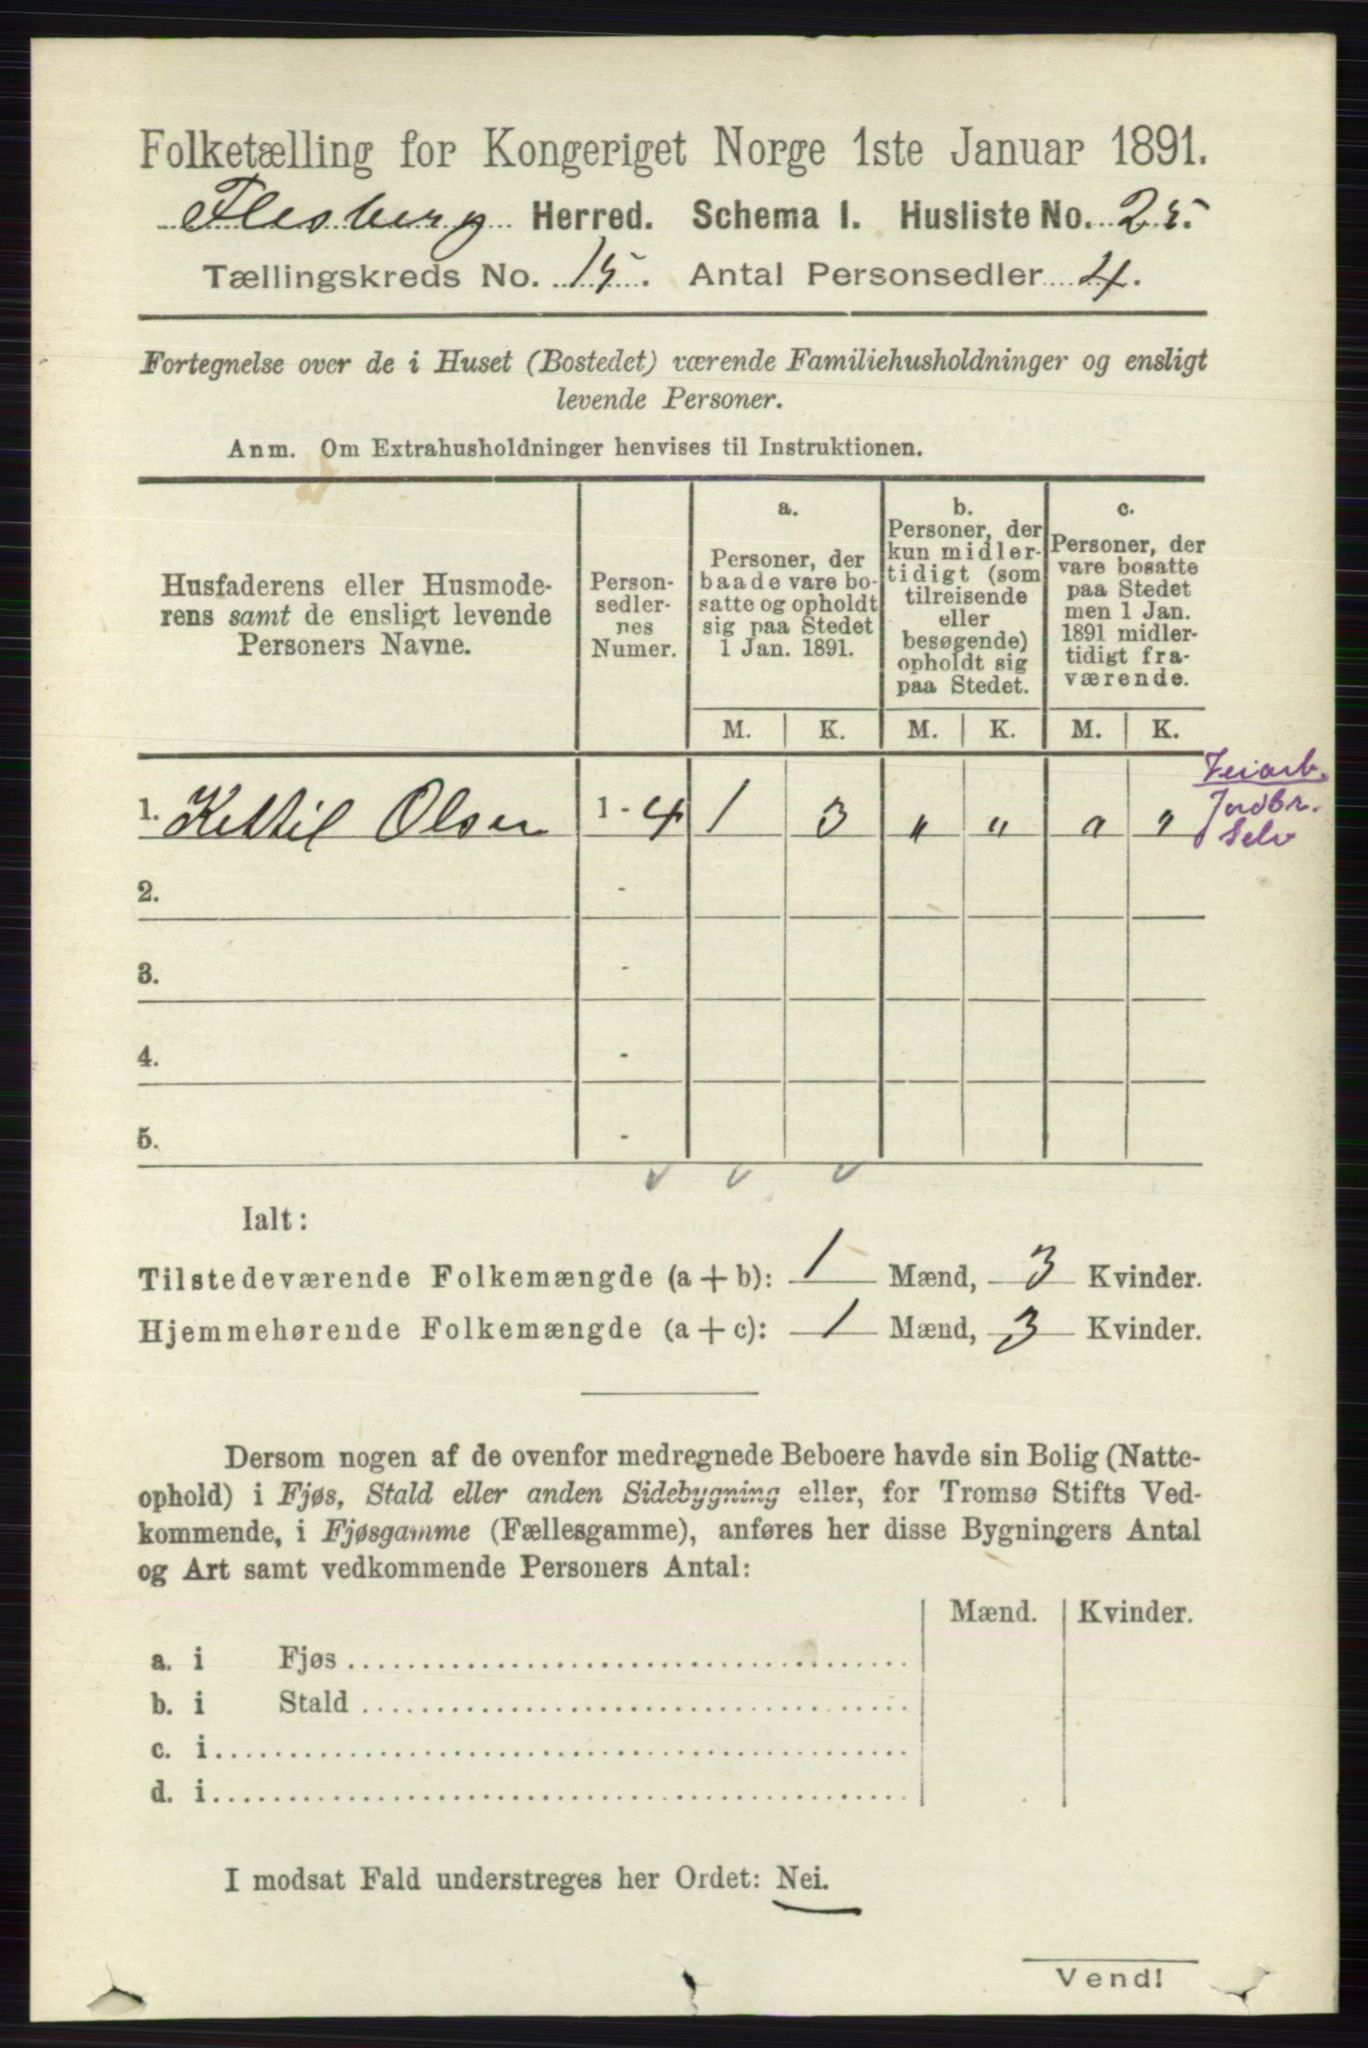 Folketælling for Kongeriget Norge 1ste Januar 1891.
Flesberg Herred. Schema I. Husliste No. 25.
Tællingskreds No. 15. Antal Personsedler 4.
Fortegnelse over de i Huset (Bostedet) værende Familiehusholdninger og ensligt
levende Personer.
Anm. Om Extrahusholdninger henvises til Instruktionen.
Husfaderens eller Husmode-
rens samt de ensligt levende
Personers Navne.
Person-
sedler-
nes
Numer.
a.
Personer, der
baade vare bo-
satte og opholdt
sig paa Stedet
1 Jan. 1891.
b.
Personer, der
kun midler-
tidigt (som
tilreisende
eller
besøgende)
opholdt sig
paa Stedet.
c.
Personer, der
vare bosatte
paa Stedet
men 1 Jan.
1891 midler-
tidigt fra-
værende.
M. K. M. K. M. K.
1. Kittil Olsen 1 - 4 1 3 „ „ „ „
Veiarb.
Jordbr.
Selv
2. -
3. -
4. -
5. -
Ialt:
Tilstedeværende Folkemængde (a + b): 1 Mænd, 3 Kvinder.
Hjemmehørende Folkemængde (a + c): 1 Mænd, 3 Kvinder.
Dersom nogen af de ovenfor medregnede Beboere havde sin Bolig (Natte-
ophold) i Fjøs, Stald eller anden Sidebygning eller, for Tromsø Stifts Ved-
kommende, i Fjøsgamme (Fællesgamme), anføres her disse Bygningers Antal
og Art samt vedkommende Personers Antal:
Mænd. Kvinder.
a. i Fjøs
b. i Stald
c. i
d. i
I modsat Fald understreges her Ordet: Nei.
Vend!